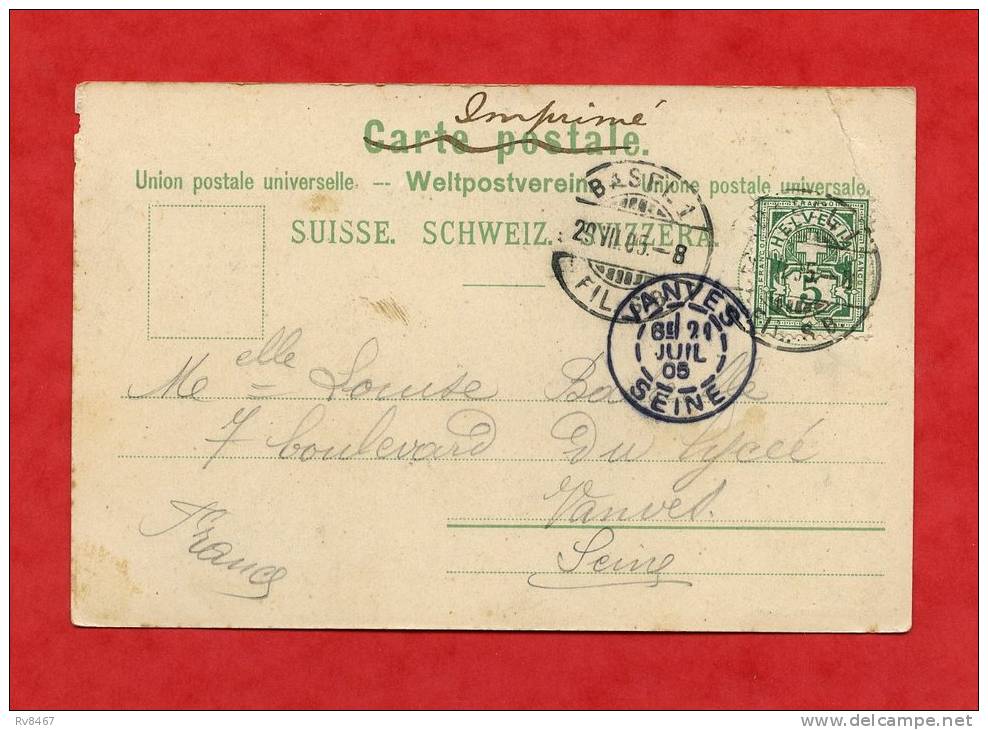 Imprimé
Carte postale.
Union postale universelle. — Weltpostverein. Unione postale universale.
SUISSE. SCHWEIZ. SVIZZERA.
BASEL 1
29.VII.05.–8
FIL
FRANCO
HELVETIA
5
VANVES
21
JUIL
05
SEINE
Melle Louise
7 boulevard Du Lycée
Vanves.
Seine
France
Rv8467
www.delcampe.net